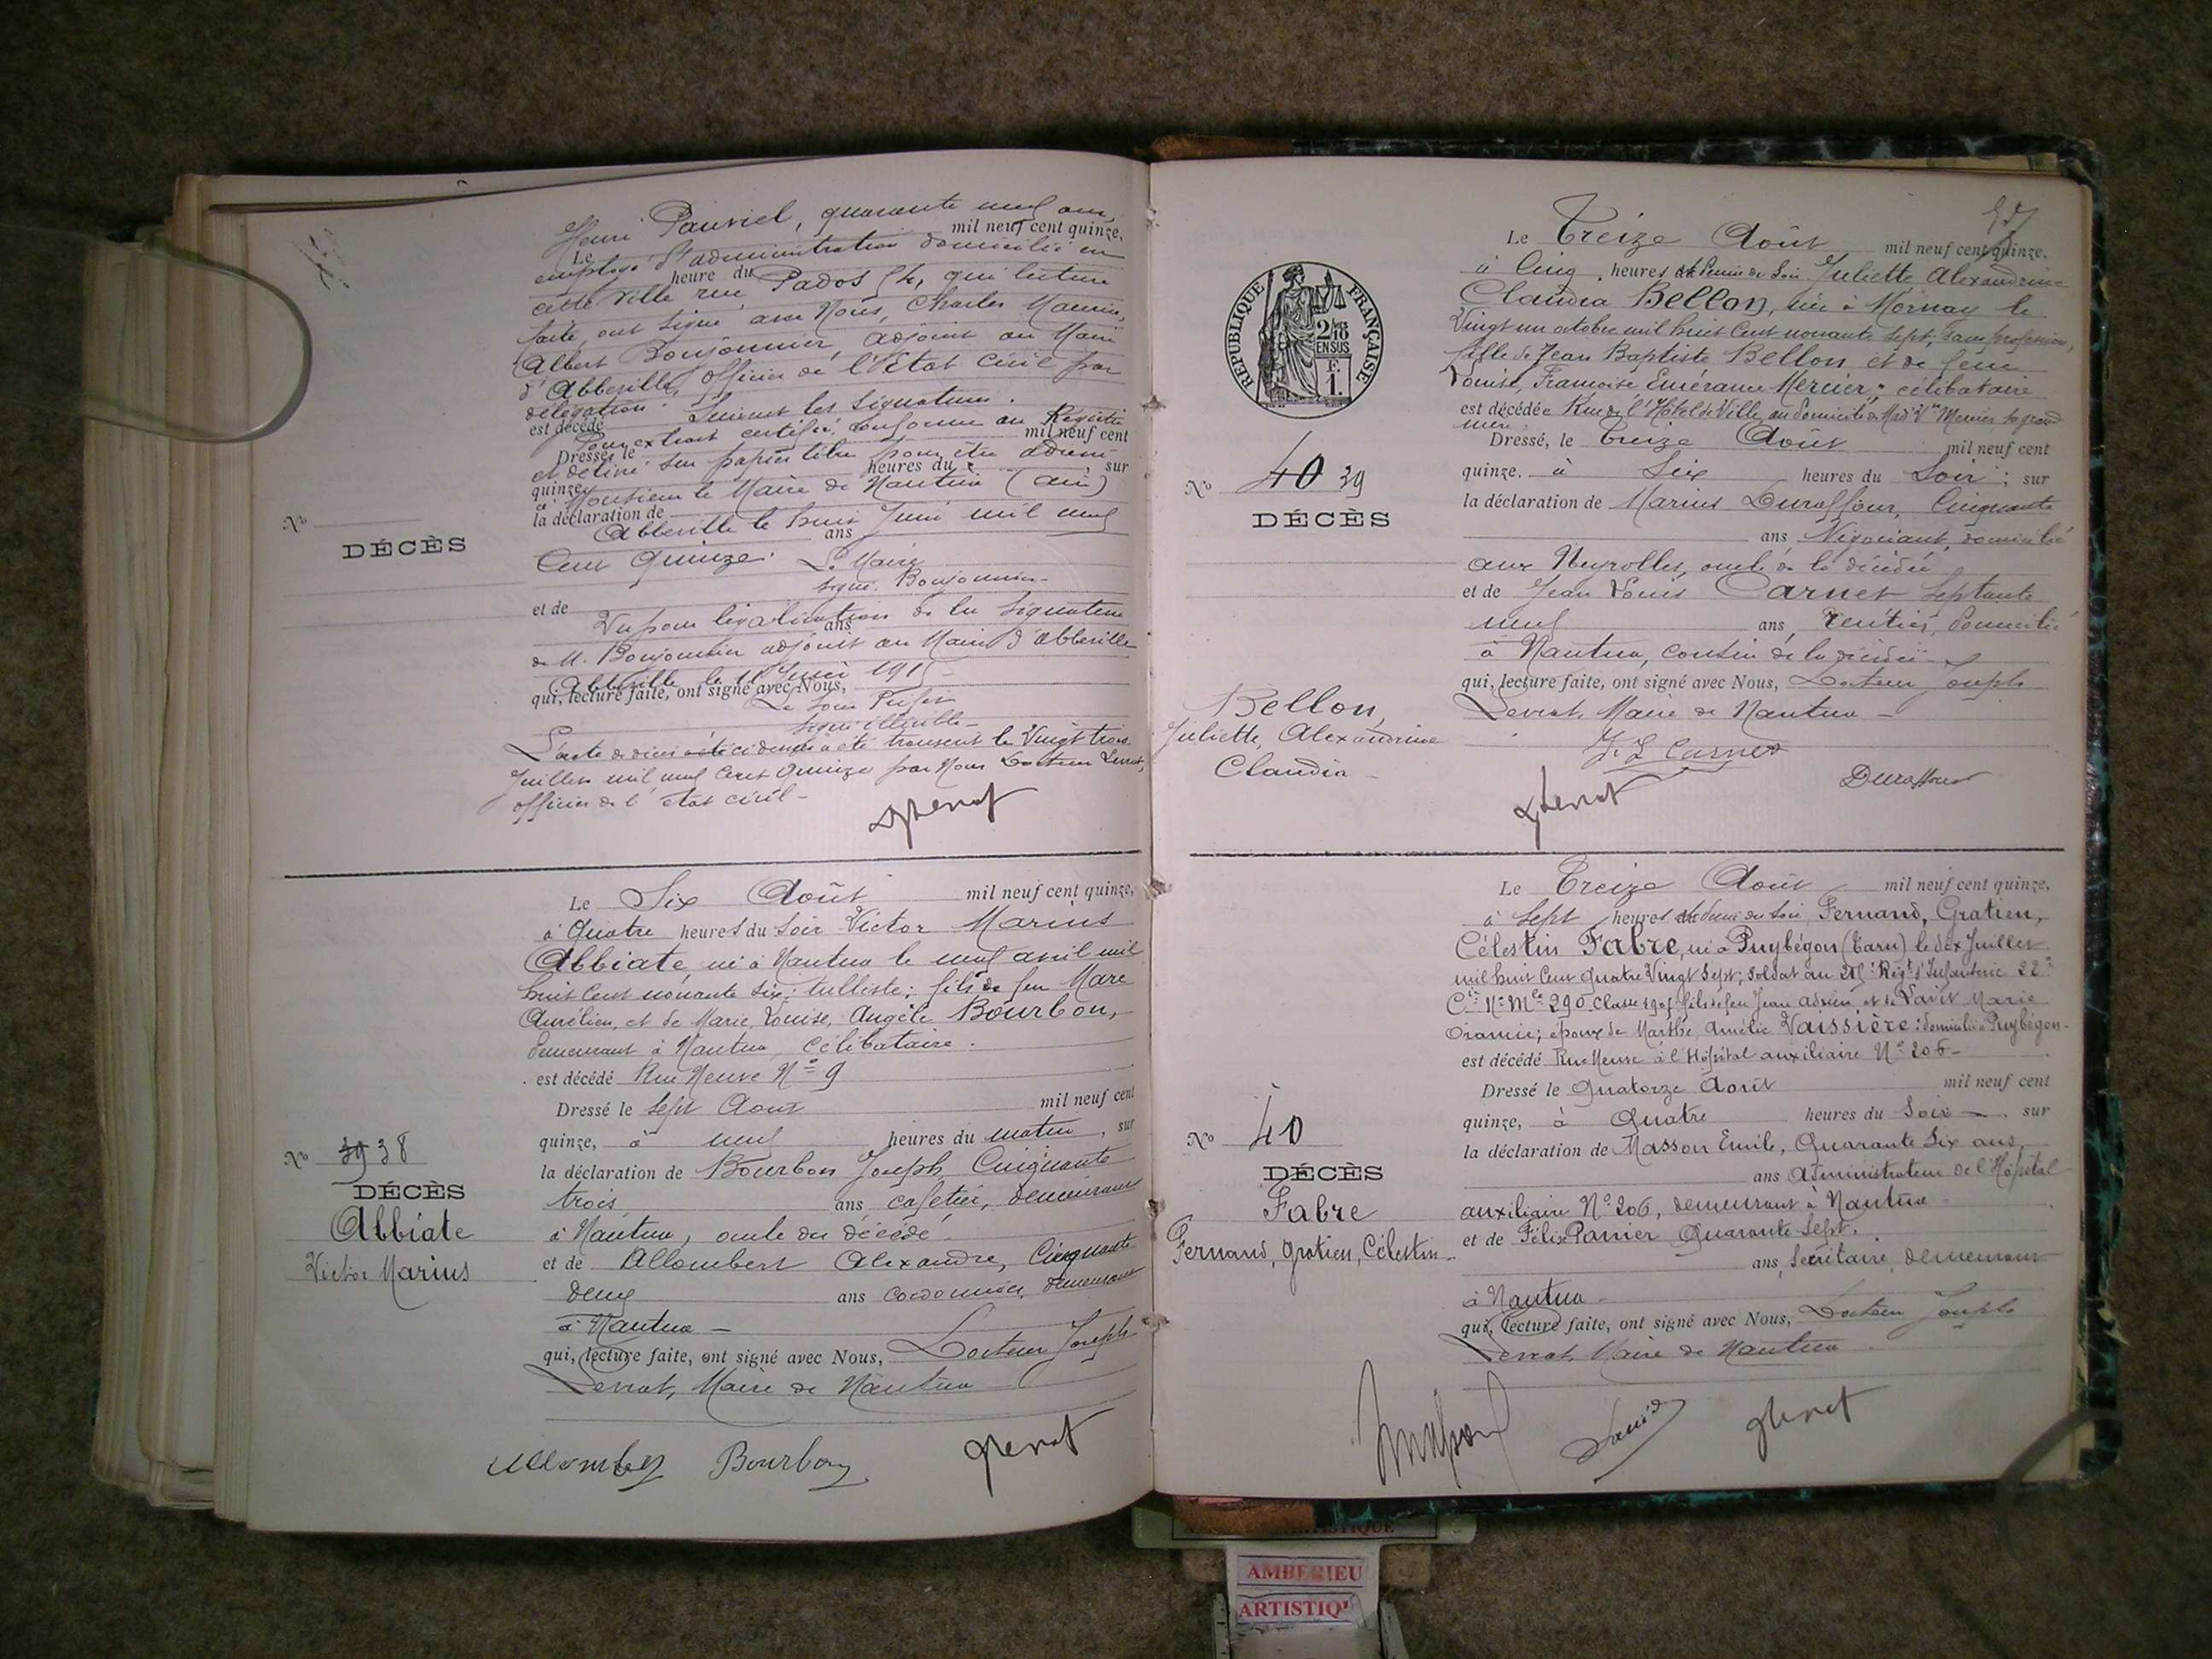 Henri Pauriel, quarante neuf ans,
Le mil neuf cent quinze,
employé d'administration domicilié en
heure du
cette ville rue Pados 54, qui lecture
faite, ont signé avec Nous, Charles Maurice
Albert Boujonnier, adjoint au Maire
d'Abbeville, officier de l'Etat civil par
délégation. Suivent les signatures.
est décédé
Pour extrait certifié conforme au Registre
Dressé le mil neuf cent
et délivré sur papier libre pour être adressé
quinze, heures du , sur
à Monsieur le Maire de Nantua (Ain)
la déclaration de
Abbeville le huit Juin mil neuf
ans
Cent Quinze. Le Maire
signé. Boujonnier
et de
Vu pour légalisation de la signature
ans
de M. Boujonnier adjoint au Maire d'Abbeville
Abbeville, le 11 Juin 1915
qui, lecture faite, ont signé avec Nous,
Le Sous Préfet
signé illisible
L'acte de décès ci dessus a été transcrit le Vingt trois
Juillet mil neuf Cent Quinze par Nous Docteur Levrat,
officier de l'état civil
No
DÉCÈS
Le Six Août mil neuf cent quinze,
à Quatre heures du Soir Victor Marius
Abbiate, né à Nantua le neuf avril mil
huit Cent nonante six; tulliste; fils de feu Marc
Aurélien, et de Marie, Louise, Angèle Bourbon,
demeurant à Nantua, Célibataire.
est décédé Rue Neuve No 9
Dressé le Sept Août mil neuf cent
quinze, à neuf heures du matin, sur
la déclaration de Bourbon Joseph, Cinquante
trois ans, cafetier, demeurant
à Nantua, oncle du décédé
et de Allombert Alexandre, Cinquante
deux ans cordonnier, demeurant
à Nantua
qui, lecture faite, ont signé avec Nous, Docteur Joseph
Levrat, Maire de Nantua
No 39 38
DÉCÈS
Abbiate
Victor Marius
Bourbon
RÉPUBLIQUE FRANÇAISE
2/10
EN SUS
F.
1.
Le Treize Août mil neuf cent quinze,
à Cinq heures et demie du Soir Juliette Alexandrine
Claudia Bellon, née à Mornay le
Vingt un octobre mil huit Cent nonante sept, sans profession,
fille de Jean Baptiste Bellon et de feue
Louise, Françoise Emérance Mercier; célibataire
est décédée Rue de l'Hôtel de Ville au domicile de Mad Vve Mercier sa grand
mère
Dressé, le Treize Août mil neuf cent
quinze. à Six heures du Soir; sur
la déclaration de Marius Duraffour, Cinquante
ans, Négociant, domicilié
aux Neyrolles, oncle de la décédée
et de Jean Louis Carnet Septante
neuf ans, rentier, domicilié
à Nantua, cousin de la décédée
qui, lecture faite, ont signé avec Nous, Docteur Joseph
Levrat, Maire de Nantua
J. L Carnet
Duraffour
No 40 39
DÉCÈS
Bellon,
Juliette, Alexandrine
Claudia
Le Treize Août mil neuf cent quinze,
à Sept heures et demie du Soir, Fernand, Gratien,
Célestin Fabre, né à Puybégon (Tarn) le dix Juillet
mil huit Cent quatre Vingt Sept; soldat au Régt d'Infanterie 22e
Cie No Mle 290 Classe fils de feu Jean Adrien et de Marie
époux de Marthe, Amélie Vaissière: domicilié à Puybégon
est décédé Rue Neuve à l'Hôpital auxiliaire No 206
Dressé le Quatorze Août mil neuf cent
quinze, à Quatre heures du Soir, sur
la déclaration de Masson Emile, Quarante Six ans,
ans Administrateur de l'Hôpital
auxiliaire No 206, demeurant à Nantua
et de Félix Panier Quarante Sept,
ans, Secrétaire, demeurant
à Nantua
qui, lecture faite, ont signé avec Nous, Docteur Joseph
Levrat, Maire de Nantua
No 40
DÉCÈS
Fabre
Fernand, Gratien, Célestin
AMBERIEU
ARTISTIQ